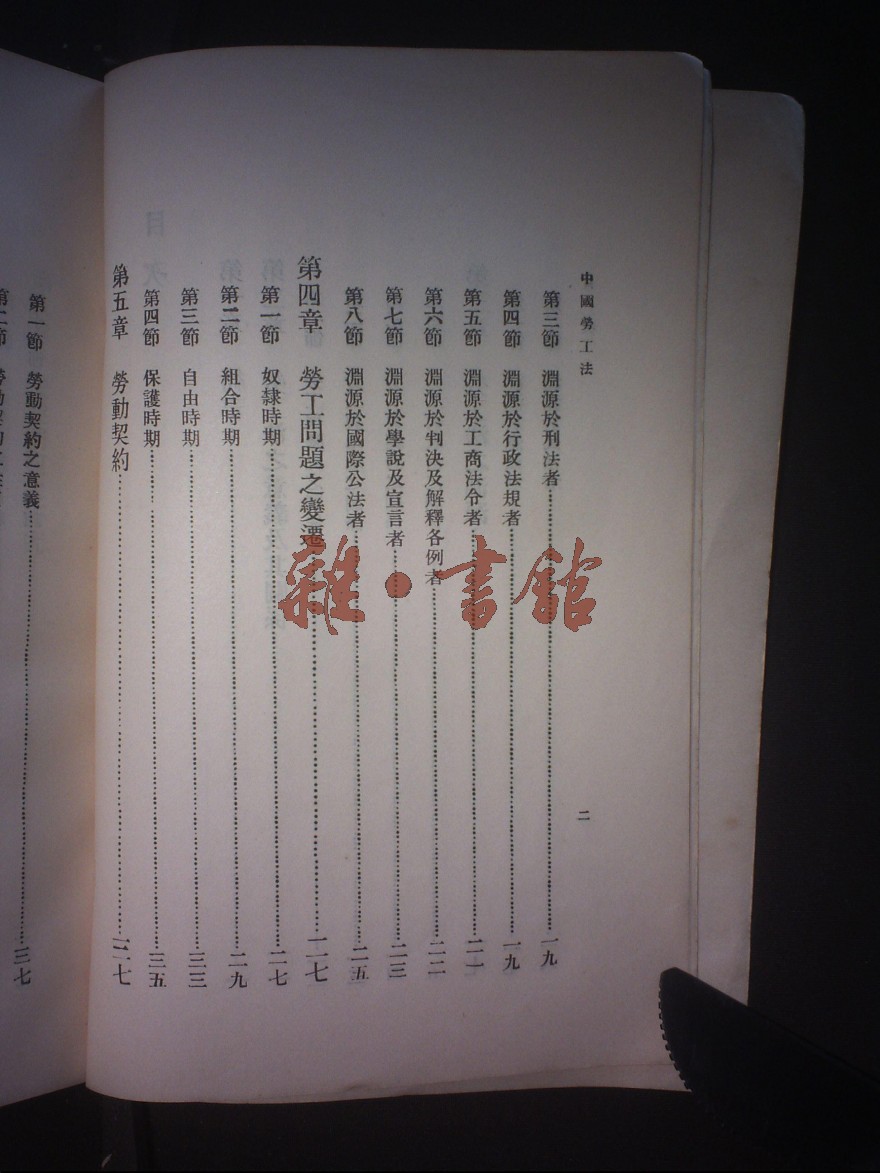 中國勞工法
二
第三節 淵源於刑法者 一九
第四節 淵源於行政法規者 一九
第五節 淵源於工商法令者 二一
第六節 淵源於判決及解釋各例者 二二
第七節 淵源於學說及宣言者 二三
第八節 淵源於國際公法者 二五
第四章 勞工問題之變遷 二七
第一節 奴隸時期 二七
第二節 組合時期 二九
第三節 自由時期 三三
第四節 保護時期 三五
第五章 勞動契約 三七
第一節 勞動契約之意義 三七
第二節
雜·書館